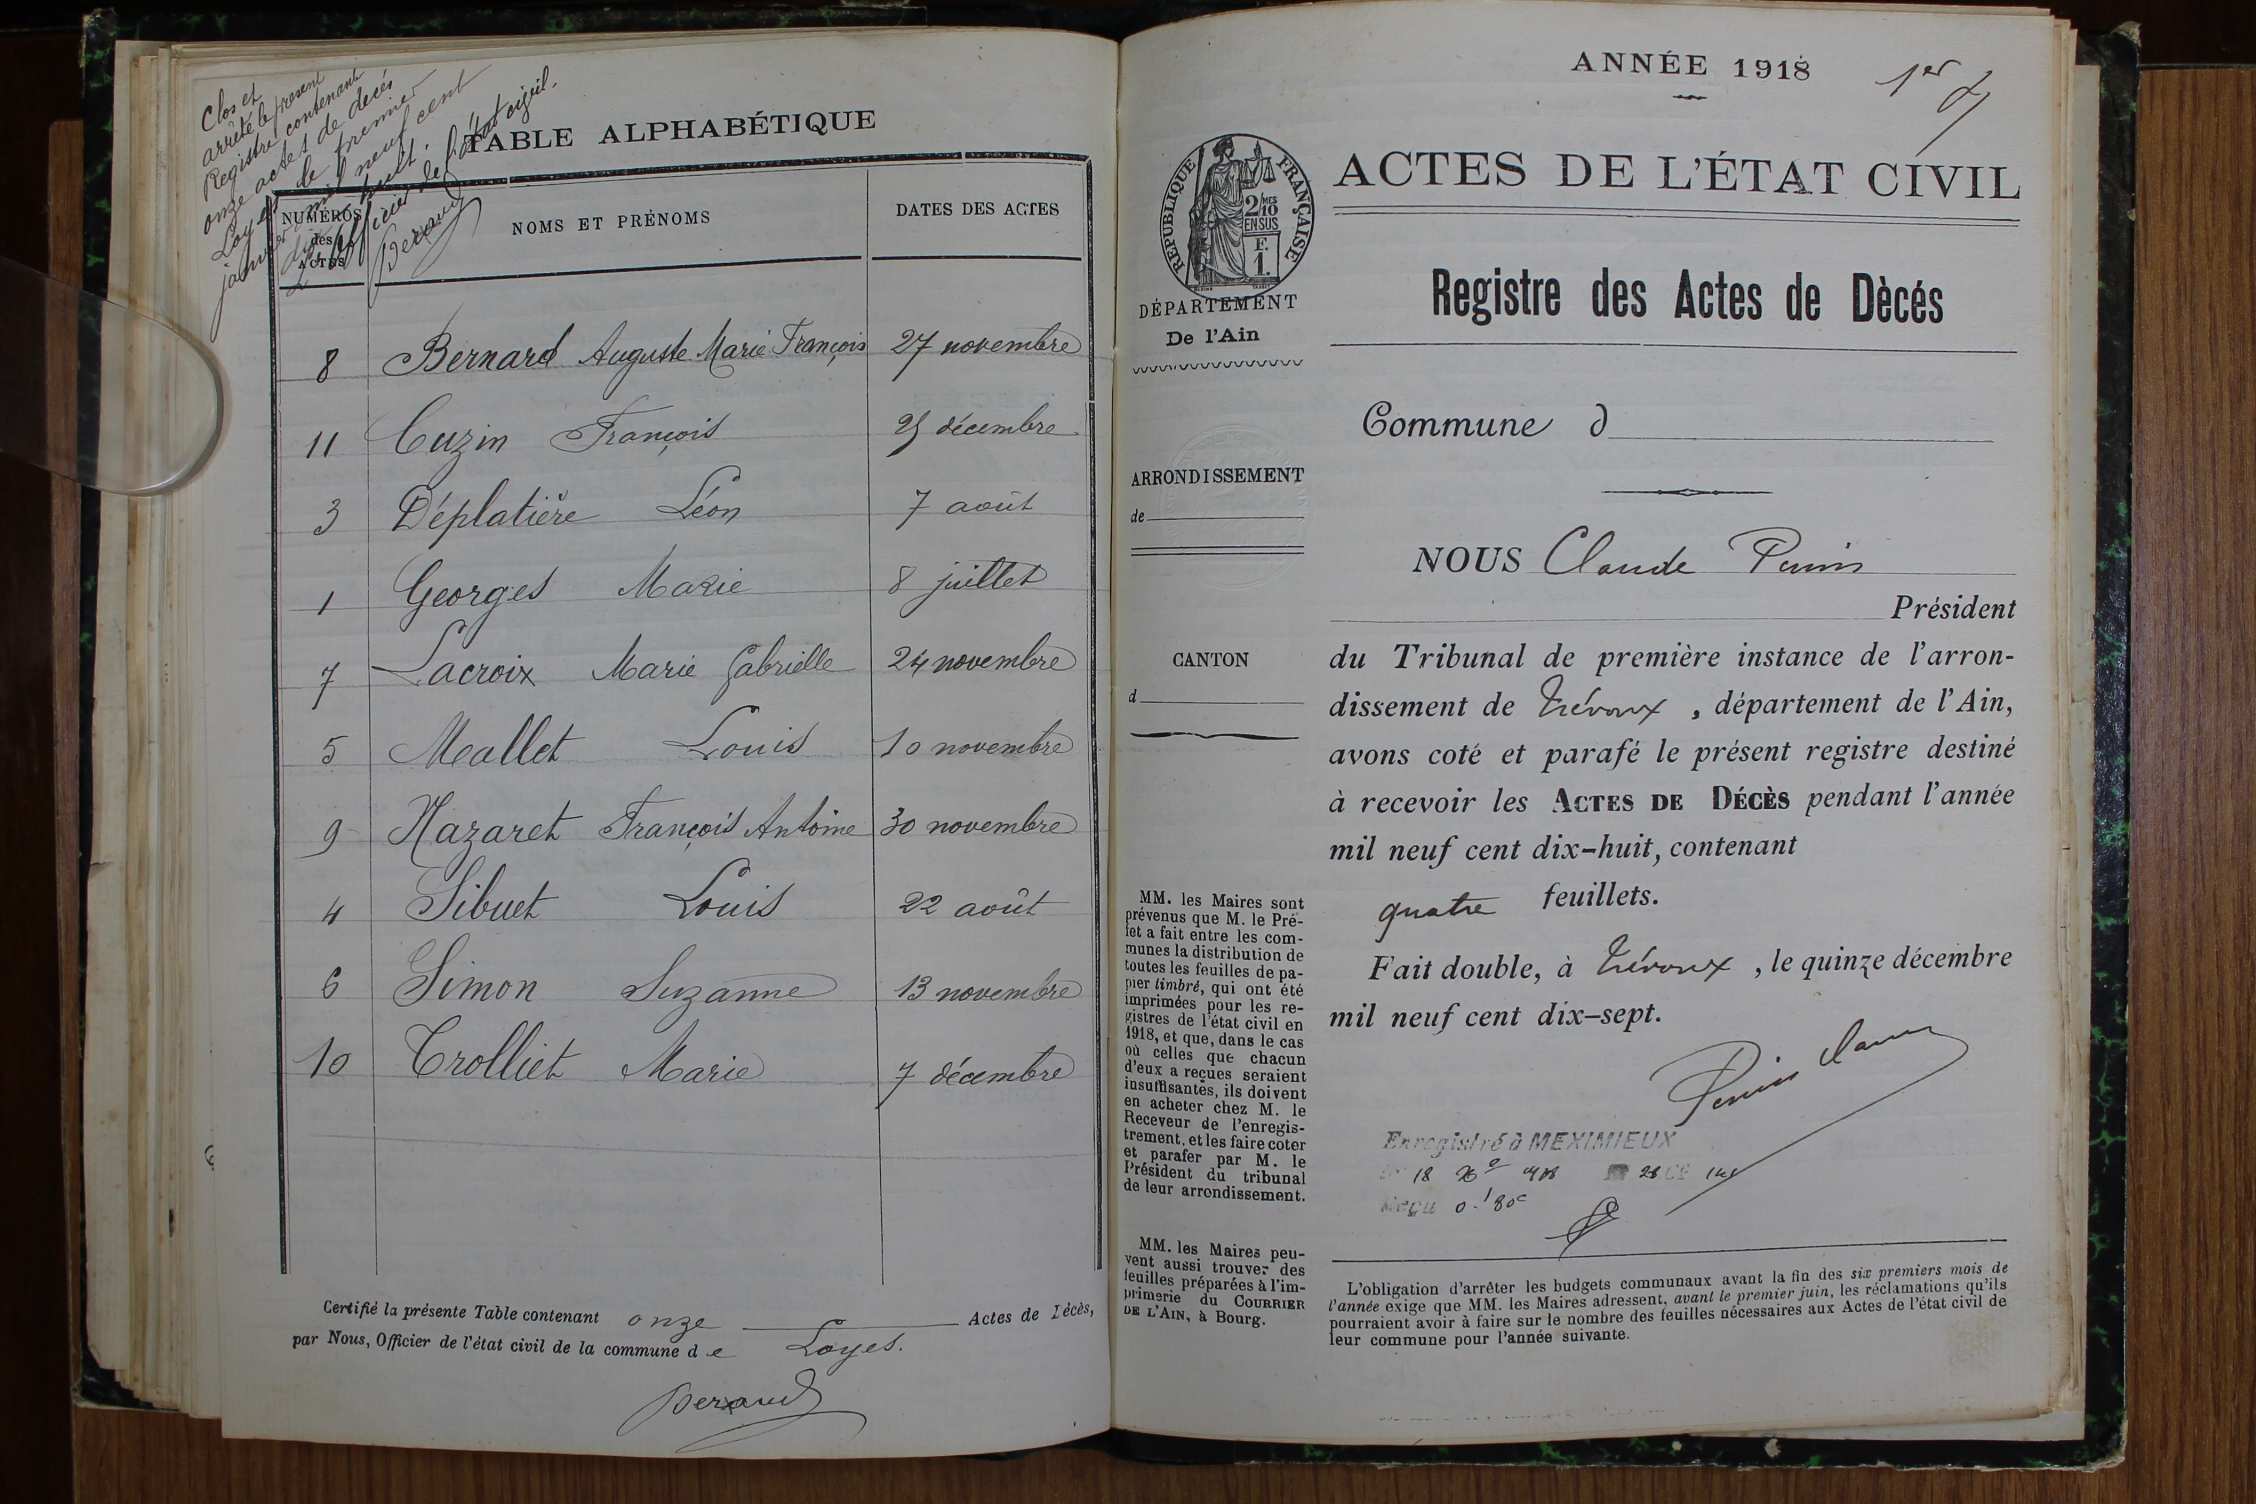 Clos et
arrêté le présent
Registre contenant
onze actes de decés
Loyes le premier
janvier mil neuf cent
dix huit.
L'officier de l'état civil.
Peraud
TABLE ALPHABÉTIQUE
NUMÉROS
des
ACTES
NOMS ET PRÉNOMS
DATES DES ACTES
8 Bernard Auguste Marie François 27 novembre
11 Cuzin François 25 décembre
3 Déplatière Léon 7 août
1 Georges Marie 8 juillet
7 Lacroix Marie Gabrielle 24 novembre
5 Mallet Louis 10 novembre
9 Nazaret François Antoine 30 novembre
4 Sibuet Louis 22 août
6 Simon Suzanne 13 novembre
10 Trolliet Marie 7 décembre
Certifié la présente Table contenant onze Actes de Décès,
par Nous, Officier de l'état civil de la commune de Loyes.
Peraud
ANNÉE 1918
1er
RÉPUBLIQUE FRANÇAISE
2/10 MES
EN SUS
F.
1.
DÉPARTEMENT
De l'Ain
ARRONDISSEMENT
de
CANTON
d
MM. les Maires sont
prévenus que M. le Pré-
fet a fait entre les com-
munes la distribution de
toutes les feuilles de pa-
pier timbré, qui ont été
imprimées pour les re-
gistres de l'état civil en
1918, et que, dans le cas
où celles que chacun
d'eux a reçues seraient
insuffisantes, ils doivent
en acheter chez M. le
Receveur de l'enregis-
trement, et les faire coter
et parafer par M. le
Président du tribunal
de leur arrondissement.
MM. les Maires peu-
vent aussi trouver des
feuilles préparées à l'im-
primerie du COURRIER
DE L'AIN, à Bourg.
ACTES DE L'ÉTAT CIVIL
Registre des Actes de Dècés
Commune d
NOUS Claude Perrin
Président
du Tribunal de première instance de l'arron-
dissement de Trévoux, département de l'Ain,
avons coté et parafé le présent registre destiné
à recevoir les ACTES DE DÉCÈS pendant l'année
mil neuf cent dix-huit, contenant
quatre feuillets.
Fait double, à Trévoux, le quinze décembre
mil neuf cent dix-sept.
Perrin Claude
Enregistré à MEXIMIEUX
18
Reçu 0.f 80c
L'obligation d'arrêter les budgets communaux avant la fin des six premiers mois de
l'année exige que MM. les Maires adressent, avant le premier juin, les réclamations qu'ils
pourraient avoir à faire sur le nombre des feuilles nécessaires aux Actes de l'état civil de
leur commune pour l'année suivante.